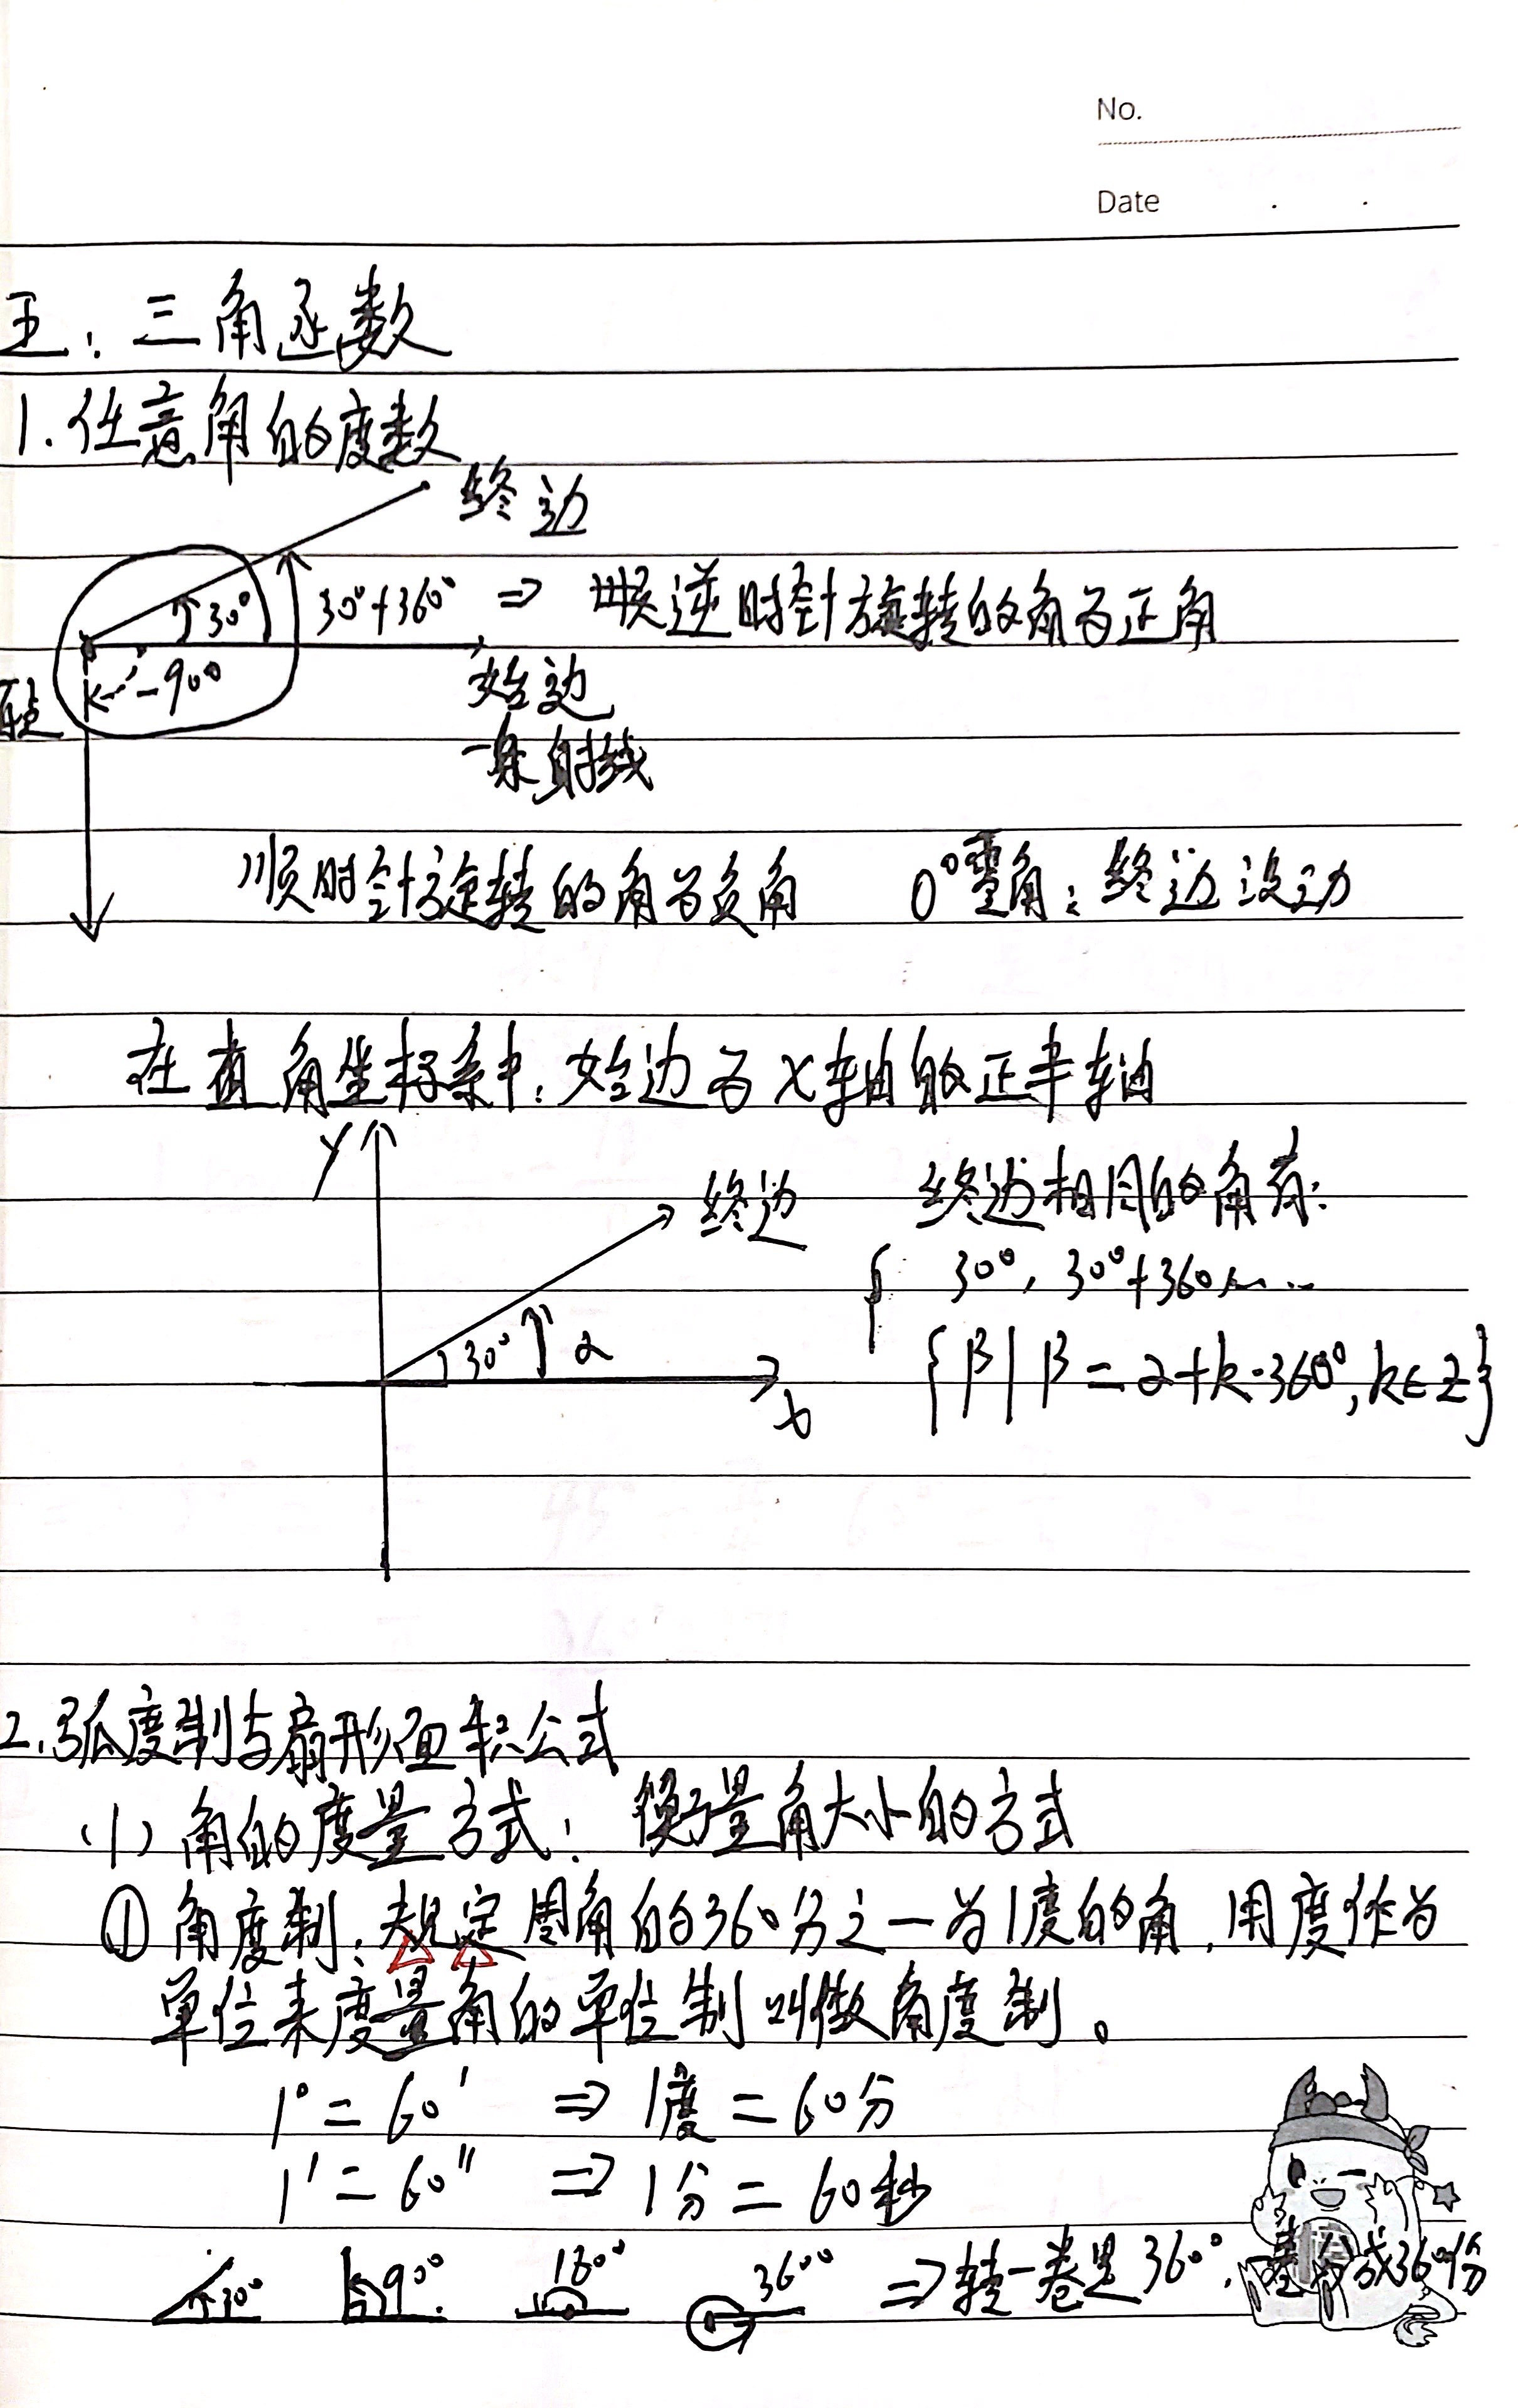 No.
Date
五：三角函数
1.任意角的度数
终边
30° 30°+360° ⇒ 逆时针旋转的角为正角
-90°
始边
一条射线
顺时针旋转的角为负角 0°零角：终边没动
在直角坐标系中，始边为x轴的正半轴
y
终边 终边相同的角有：
30°，30°+360°……
30° α
{β|β=α+k·360°,k∈Z}
x
2.弧度制与扇形面积公式
(1) 角的度量方式：衡量角大小的方式
① 角度制：规定周角的360分之一为1度的角，用度作为
单位来度量角的单位制叫做角度制。
1°=60′ ⇒ 1度=60分
1′=60″ ⇒ 1分=60秒
30° 90° 180° 360° ⇒转一卷是360°，成360份